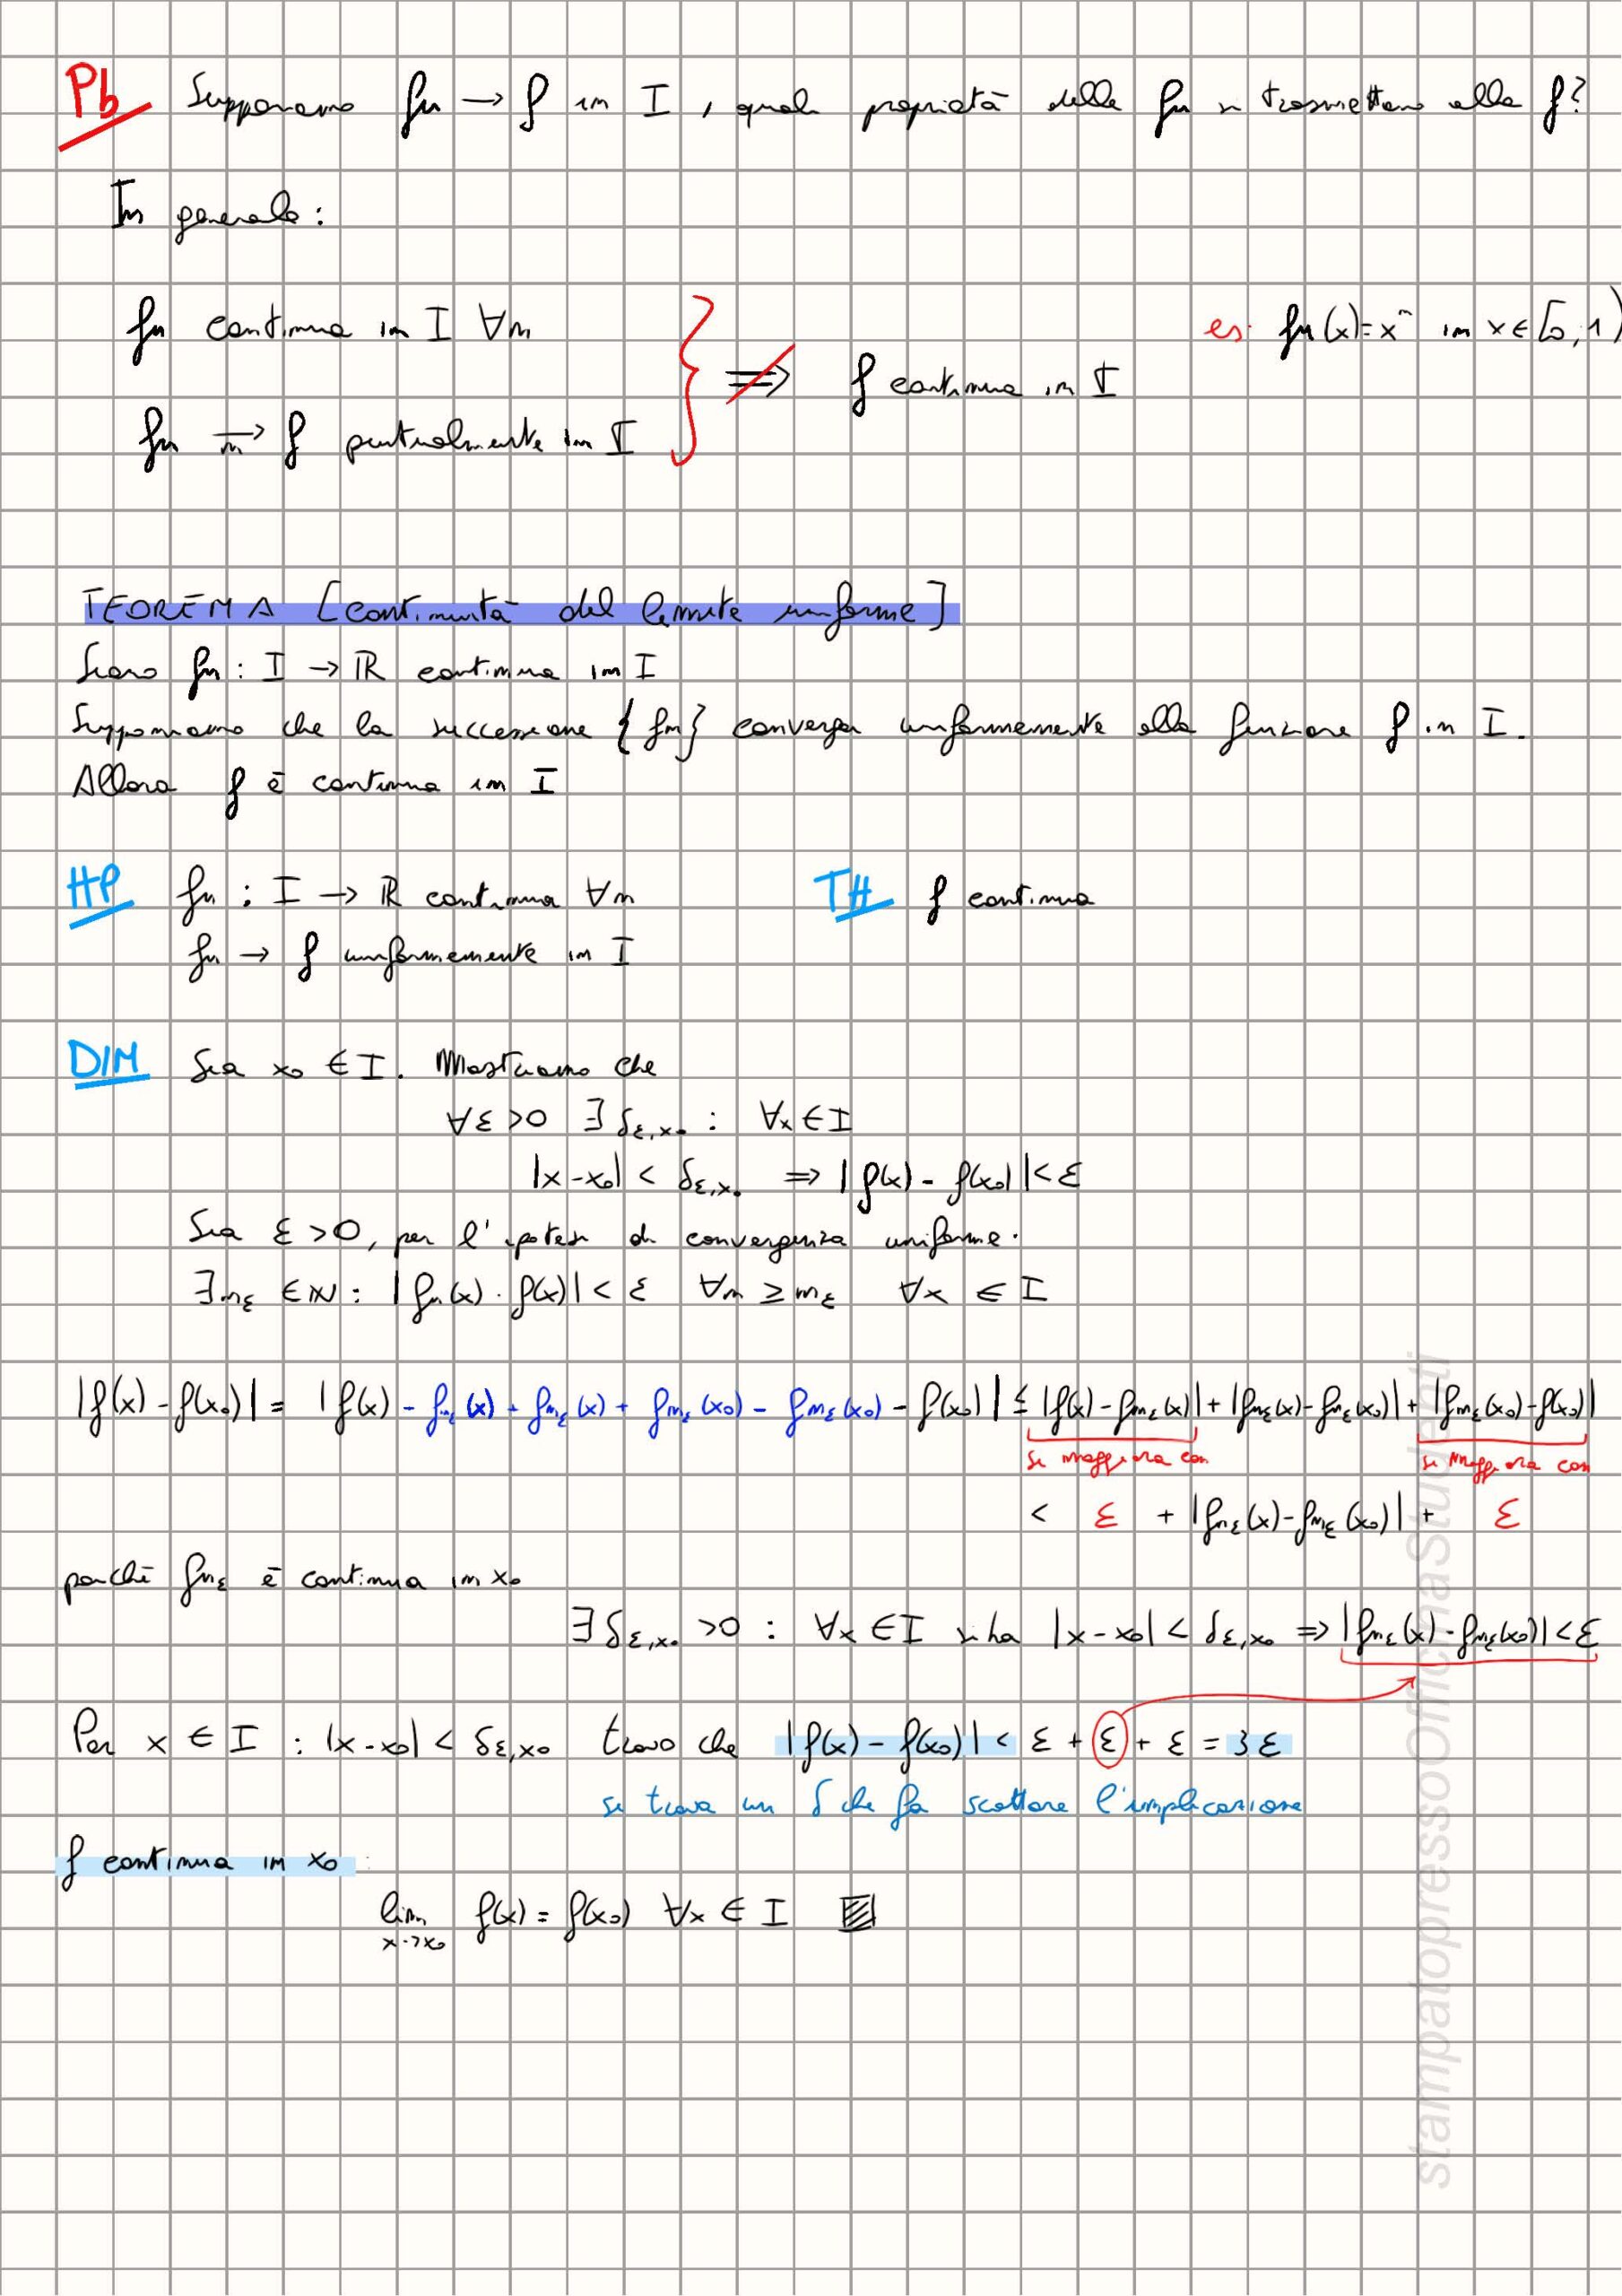 Pb Supponiamo fn → f in I, quali proprietà delle fn si trasmettono alla f?
In generale:
fn continua in I ∀n
es: fn(x)=xⁿ in x∈[0,1)
⇏ f continua in I
fn →n f puntualmente in I
TEOREMA [continuità del limite uniforme]
Siano fn : I → ℝ continua in I
Supponiamo che la successione {fn} converga uniformemente alla funzione f in I.
Allora f è continua in I
HP fn : I → ℝ continua ∀n TH f continua
fn → f uniformemente in I
DIM Sia x₀ ∈ I. Mostriamo che
∀ε>0 ∃ δε,x₀ : ∀x∈I
|x-x₀| < δε,x₀ ⇒ |f(x) - f(x₀)| < ε
Sia ε>0, per l'ipotesi di convergenza uniforme.
∃nε ∈ ℕ : |fn(x) - f(x)| < ε ∀n ≥ nε ∀x ∈ I
|f(x) - f(x₀)| = |f(x) - fnε(x) + fnε(x) + fnε(x₀) - fnε(x₀) - f(x₀)| ≤ |f(x) - fnε(x)| + |fnε(x) - fnε(x₀)| + |fnε(x₀) - f(x₀)|
si maggiora con si maggiora con
< ε + |fnε(x) - fnε(x₀)| + ε
poiché fnε è continua in x₀
∃ δε,x₀ > 0 : ∀x ∈ I si ha |x-x₀| < δε,x₀ ⇒ |fnε(x) - fnε(x₀)| < ε
Per x ∈ I : |x-x₀| < δε,x₀ trovo che |f(x) - f(x₀)| < ε + ε + ε = 3ε
si trova un δ che fa scattare l'implicazione
f continua in x₀
lim x→x₀ f(x) = f(x₀) ∀x ∈ I
stampatopressoOfficinaStudenti